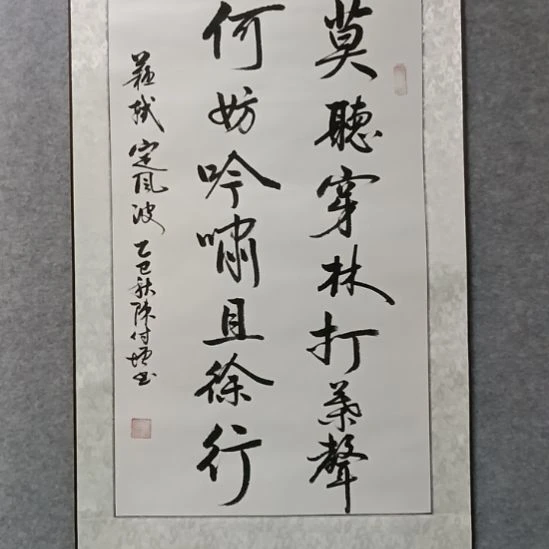 莫聽穿林打葉聲
何妨吟嘯且徐行
蘇軾 定風波 乙巳秋陳付塏书